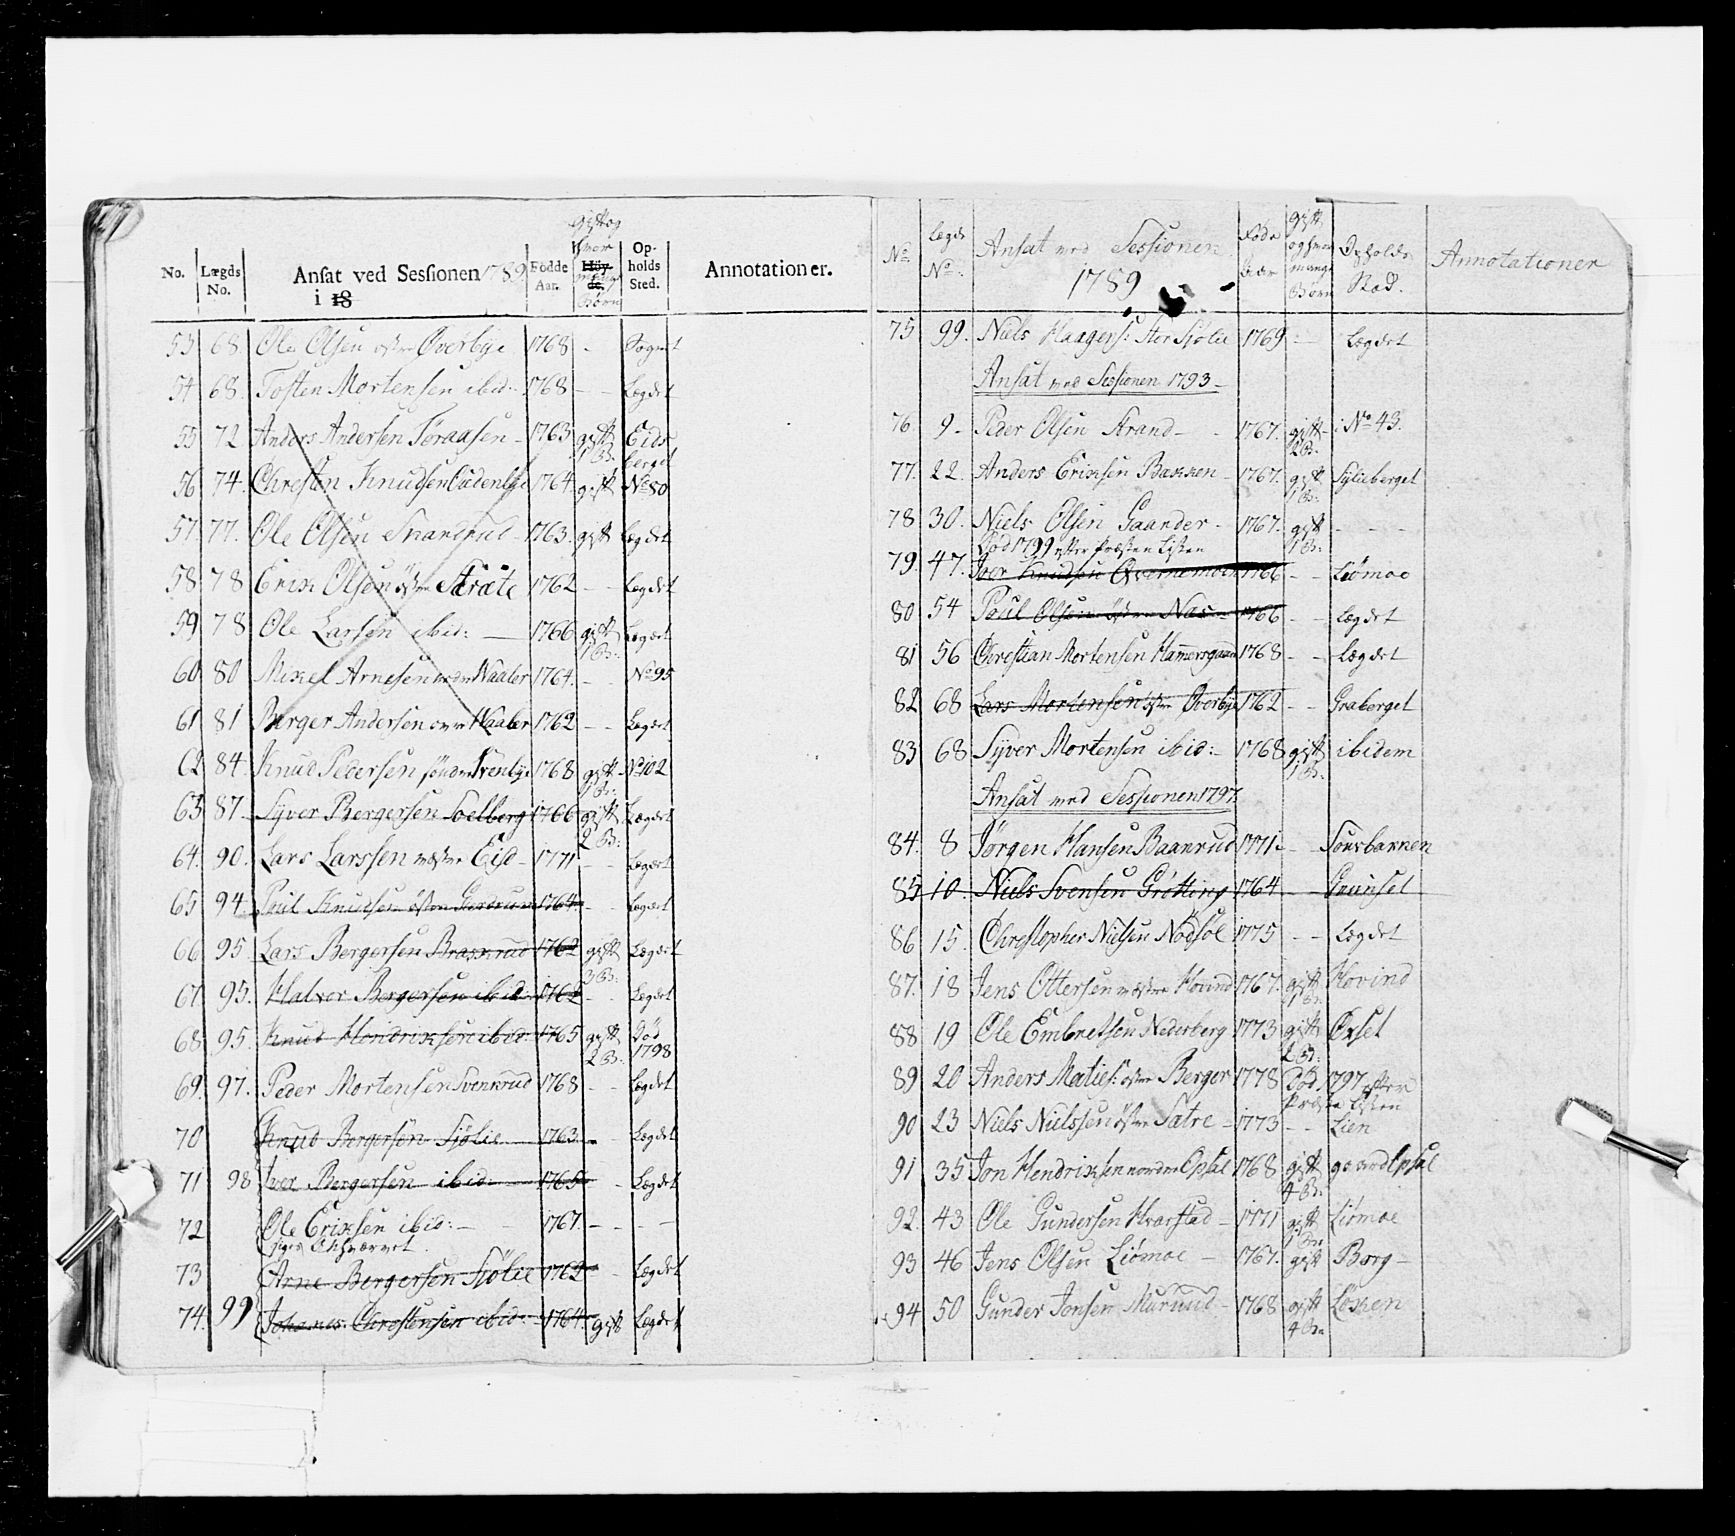 No. Lægds No. Ansat ved Sessionen 1789. i 18 Födde Aar. gift og hvor mange Börn Opholds Sted. Annotationer.
53 68 Ole Olsen östre Överbye 1768 - Sognet
54 68. Tosten Mortensen ibid: 1768 - - Lægdet
55 72 Anders Andersen Töraasen - 1763 gift 1 B: Eidsberget
56 74. Chresten Knudsen 1764 gift No 80
57 77. Ole Olsen Skandrud - 1763. gift Lægdet
58 78 Erik Olsen östre Stræte 1762 - - Lægdet
59 78 Ole Larsen ibid: — 1766 gift 1 B: Lægdet
60 80 Mikel Arnesen nedre Waaler 1764. - - No 95
61 81 Berger Andersen Waaler 1762 - - Lægdet
62 84. Knud Pedersen söndre Svenbye 1768 gift 1 B: No 102
63 87. Syver Bergersen Solberg 1766 gift 2 B: Lægdet
64. 90. Lars Larssen vestre Eid - 1771 - - Lægdet
65 94. Poul Knudsen östre 1764. - - Lægdet
66 95 Lars Bergersen Braskrud 1762 gift 3 B: Lægdet
67 95. Halvor Bergersen ibid: 1762 - - Lægdet
68 95. Knud Hendriksen ibid: 1765 gift 2 B: Död 1798
69. 97. Peder Mortensen Svenkrud 1768 - - Lægdet
70 Knud Bergersen Sjölie 1763. - - Lægdet
71 98 Iver Bergersen ibid: 1765 - Lægdet
72 Ole Eriksen ibid: — 1767. - - —
73 Arne Bergersen Sjölie 1762 - Lægdet
74. 99 Johannes Christensen ibid: 1764. gift Lægdet
No. Lægds No. Ansat ved Sessionen 1789 Föde Aar gift og hvor mange Börn Opholds Stæd. Annotationer
75 99. Niels Haagens: Stor Sjölie 1769 - Lægdet
Ansat ved Sessionen 1793 -
76 9 - Peder Olsen Strand - - 1767. gift 2 B: i No 43.
77. 22. Anders Eriksen Bakken - 1767. gift 1 B: Sylieberget
78 30. Niels Olsen Gaarder - 1767. gift 1 B: - - -
Död 1799 efter Præsten Listen
79 47. Iver Knudsen 1766 - - Liömoe
80 54 Poul Olsen östre Næs - 1766 - - Lægdet
81 56 Christian Mortensen Hammersgaard 1768 - - Lægdet
82 68 Lars Mortensen östre Överbye 1762 - - Graberget
83 68 Syver Mortensen ibid: - 1768 gift 1 B: ibidem
Ansat ved Sessionen 1797.
84. 8 Jörgen Hansen Baanrud 1771 - - Sörsbarnen
85 10. Niels Svensen Grötting 1764 - - Grunset
86 15. Christopher Nielsen Nodsöe 1775 - - Lægdet
87. 18 Jens Ottersen vestre Hovind 1767. gift 1 Br. Hovind
88 19 Ole Embretsen Nederberg 1773 gift 2 B: Öxset
89 20 Anders Maties: östre Berger 1778 Död 1797 efter Præste Listen
90 23 Niels Nielssen östre Sætre - 1773 - - Lien
91 35 Jon Hendriksen nordre Opsal 1768 gift 4 B: gaard Opsal
92. 43 Ole Gundersen Hvarstad - 1771 gift 1 Bn Liömoe
93 46 Jens Olsen Liömoe - 1767. gift Borg -
94 50 Gunder Jonsen Mürüud - 1768 gift 4 Bn Löken